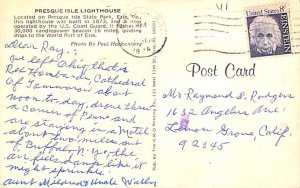 PRESQUE ISLE LIGHTHOUSE
Located on Presque Isle State Park, Erie, Pa.,
this lighthouse was built in 1872, and is now
operated by the U.S. Coast Guard. It flashes its
30,000 candlepower beacon 16 miles, guiding
ships to the World Port of Erie.
Photo By Paul
Dear Ray:
We left Ohio, this a.
Rex Humbard Cathedral
of Tomorrow about
noon to-day, drove thru
a corner of Penn and
are staying in a Motel
about five miles out
of Buffalo, N.Y.
air feels damp like it
might sprinkle.
Aunt Mildred & Uncle Wally
PM
EINSTEIN
8c
Post Card
Mr Raymond E. Rodgers
1632 Angelus Ave.
Lemon Grove, Calif.
92045